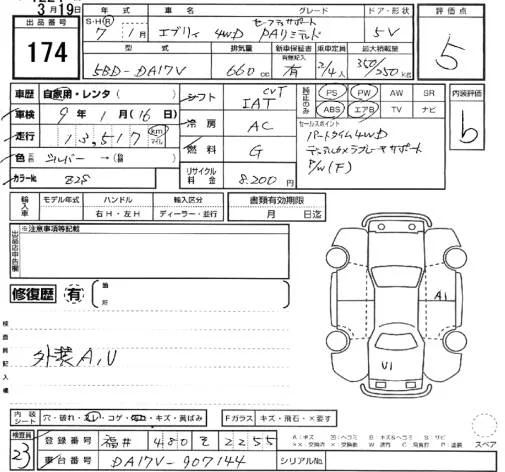 3月19日
出品番号
174
年式
S・H・R
7 1月
車名
エブリイ 4WD
グレード
セーフティサポート
PAリミテッド
ドア・形状
5V
評価点
5
型式
5BD-DA17V
排気量
660cc
新車保証書
有無記入
有
乗車定員
2/4人
最大積載量
350/250kg
車歴 自家用・レンタ( )
車検 9年1月(16日)
走行 13,517 km マイル
色 シルバー→
カラーNo. Z2S
シフト CVT IAT
冷房 AC
燃料 G
リサイクル料金 8,200円
純正のみ
PS PW AW SR
ABS エアB TV ナビ
セールスポイント
パートタイム4WD
デュアルカメラブレーキサポート
P/W(F)
内装評価
b
輸入車
モデル年式
ハンドル
右H・左H
輸入区分
ディーラー・並行
書類有効期限
月 日迄
出品店申告欄
※注意事項等記載
修復歴 有
箇所
検査員記入欄
外装A,U
A1
U1
内装シート 穴・破れ・スレ・コゲ・汚れ・キズ・黄ばみ
Fガラス キズ・飛石・×要す
検査員
23
登録番号 福井 480 そ 2255
車台番号 DA17V-907144
シリアルNo.
スペア